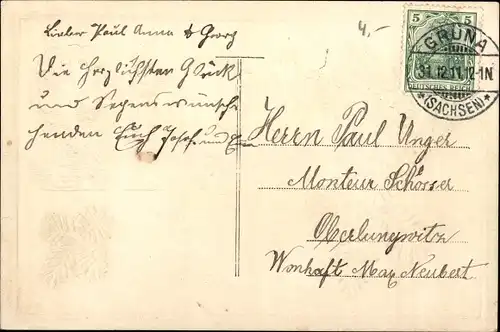 Lieber Paul Anna & Georg
Die herzlichsten Glück
und Segenswünsche
senden Euch Josef und
4,-
5 5
DEUTSCHES REICH
GRÜNA
31.12.11.12-1N
*(SACHSEN)*
Herrn Paul Unger
Monteur Schösser
Oberlungwitz
Wonhaft Max Neubert